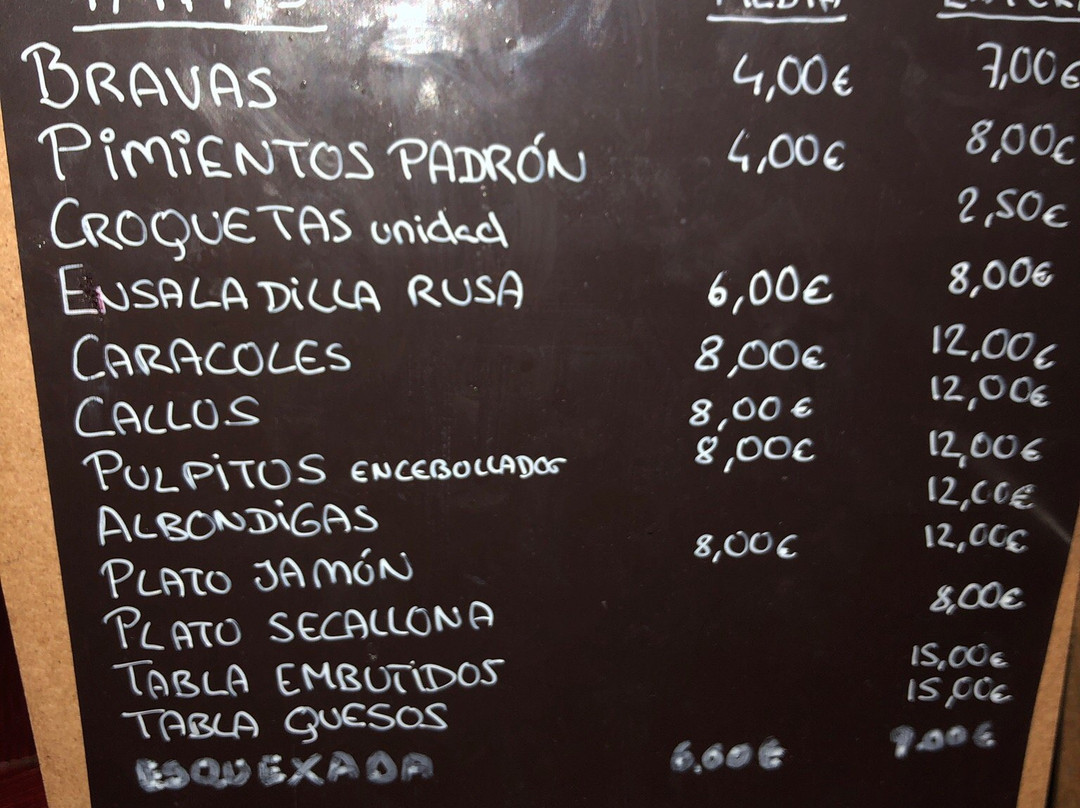 BRAVAS 4,00€ 7,00€
PIMIENTOS PADRÓN 4,00€ 8,00€
CROQUETAS unidad 2,50€
ENSALADILLA RUSA 6,00€ 8,00€
CARACOLES 8,00€ 12,00€
CALLOS 8,00€ 12,00€
PULPITOS ENCEBOLLADOS 8,00€ 12,00€
ALBONDIGAS 12,00€
PLATO JAMÓN 8,00€ 12,00€
PLATO SECALLONA 8,00€
TABLA EMBUTIDOS 15,00€
TABLA QUESOS 15,00€
ESQUEXADA 6.00€ 9.00€